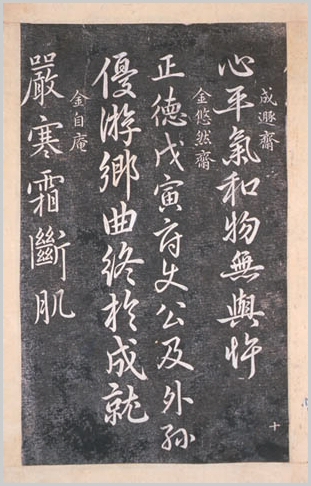 成遯齋
心平氣和物無與忤
金悠然齋
正德戊寅 公及外孫
優游鄉曲終於成就
金自庵
嚴寒霜斷肌
十